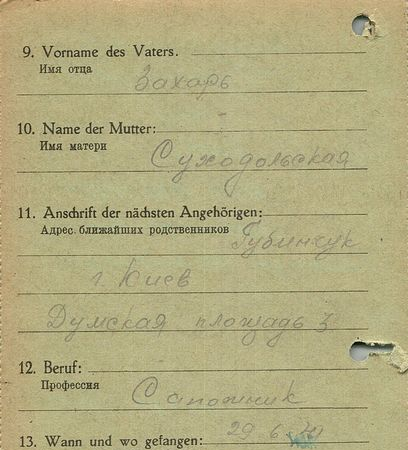 9. Vorname des Vaters.
Имя отца
Захарь
10. Name der Mutter:
Имя матери
Суходольская
11. Anschrift der nächsten Angehörigen:
Адрес ближайших родственников
Губинчук
г. Киев
Думская площадь 3
12. Beruf:
Профессия
Сапожник
13. Wann und wo gefangen: 29 6 41